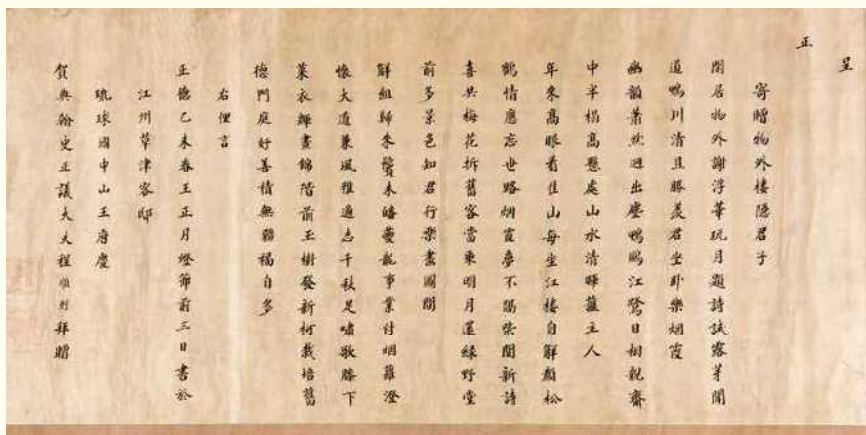 呈
正
寄贈物外樓隱君子
閒居物外謝浮華玩月題詩試露芽聞
道鴨川清且勝羨君坐卧樂烟霞
幽韻蕭然迥出塵鴨鷗江鷺日相親齋
中半榻高懸處山水清暉主人
年來高眼看佳山每坐江樓自解顏松
鶴情應忘世路烟霞夢不隔柴關新詩
喜共梅花拆舊客當乘明月還緑野堂
前多景色知君行樂畫圖間
解組歸來鬢未皤夔龍事業付烟蘿澄
懷大道兼風雅適志千秋足嘯歌膝下
萊衣輝晝錦階前玉樹發新柯栽培舊
德門庭好善積無彊福自多
右俚言
正德乙未春王正月燈節前三日書於
江州草津客邸
琉球國中山王府慶
賀典翰史正議大夫程順則拜贈